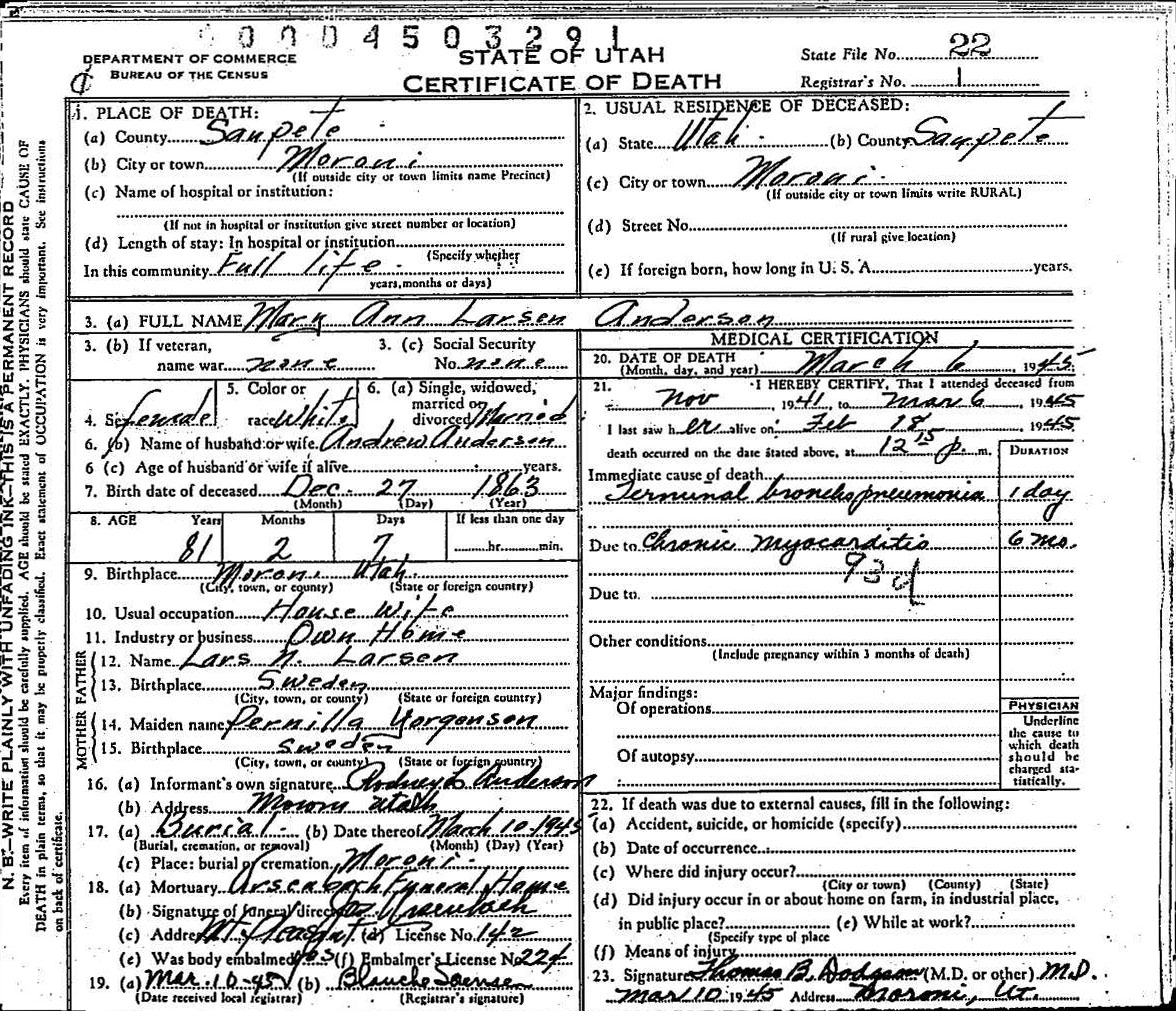 0004503291
DEPARTMENT OF COMMERCE
BUREAU OF THE CENSUS
STATE OF UTAH
CERTIFICATE OF DEATH
State File No. 22
Registrar's No. 1
N. B.—WRITE PLAINLY WITH UNFADING INK—THIS IS A PERMANENT RECORD
Every item of information should be carefully supplied. AGE should be stated EXACTLY. PHYSICIANS should state CAUSE OF
DEATH in plain terms, so that it may be properly classified. Exact statement of OCCUPATION is very important. See instructions
on back of certificate.
1. PLACE OF DEATH:
(a) County Sanpete
(b) City or town Moroni
(If outside city or town limits name Precinct)
(c) Name of hospital or institution:
(If not in hospital or institution give street number or location)
(d) Length of stay: In hospital or institution
(Specify whether
In this community Full life
years, months or days)
2. USUAL RESIDENCE OF DECEASED:
(a) State Utah (b) County Sanpete
(c) City or town Moroni
(If outside city or town limits write RURAL)
(d) Street No.
(If rural give location)
(e) If foreign born, how long in U. S. A. years.
3. (a) FULL NAME Mary Ann Larsen Andersen
3. (b) If veteran,
name war none
3. (c) Social Security
No. none
4. Sex Female
5. Color or
race White
6. (a) Single, widowed,
married or
divorced Married
6. (b) Name of husband or wife Andrew Andersen
6 (c) Age of husband or wife if alive years.
7. Birth date of deceased Dec. 27 1863
(Month) (Day) (Year)
8. AGE Years Months Days If less than one day
81 2 7 hr. min.
9. Birthplace Moroni Utah
(City, town, or county) (State or foreign country)
10. Usual occupation House wife
11. Industry or business Own Home
FATHER
12. Name Lars N. Larsen
13. Birthplace Sweden
(City, town, or county) (State or foreign country)
MOTHER
14. Maiden name Pernilla Yorgensen
15. Birthplace Sweden
(City, town, or county) (State or foreign country)
16. (a) Informant's own signature Rodney L Anderson
(b) Address Moroni Utah
17. (a) Burial (b) Date thereof March 10-1945
(Burial, cremation, or removal) (Month) (Day) (Year)
(c) Place: burial or cremation Moroni
18. (a) Mortuary Ursenbach Funeral Home
(b) Signature of funeral director Ursenbach
(c) Address Mt Pleasant (d) License No. 142
(e) Was body embalmed yes (f) Embalmer's License No. 224
19. (a) Mar. 10-45 (b) Blanche
(Date received local registrar) (Registrar's signature)
MEDICAL CERTIFICATION
20. DATE OF DEATH March 6, 1945
(Month, day, and year)
21. I HEREBY CERTIFY, That I attended deceased from
Nov, 1941, to Mar 6, 1945
I last saw her alive on Feb 18, 1945
death occurred on the date stated above, at 12 15 p. m.
DURATION
Immediate cause of death
Terminal bronchopneumonia 1 day
Due to Chronic Myocarditis 6 mo.
93d
Due to
Other conditions
(Include pregnancy within 3 months of death)
Major findings:
Of operations
Of autopsy
PHYSICIAN
Underline
the cause to
which death
should be
charged sta-
tistically.
22. If death was due to external causes, fill in the following:
(a) Accident, suicide, or homicide (specify)
(b) Date of occurrence
(c) Where did injury occur?
(City or town) (County) (State)
(d) Did injury occur in or about home on farm, in industrial place,
in public place? (e) While at work?
(Specify type of place
(f) Means of injury
23. Signature Thomas B. Dodgson (M.D. or other) M.D.
Mar 10 1945 Address Moroni, Ut.